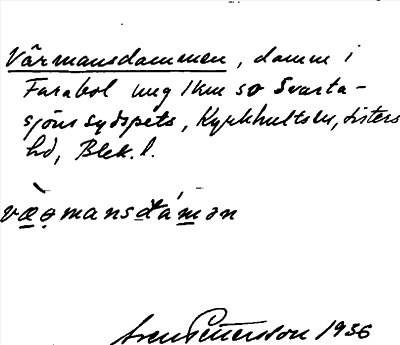 Värmansdammen, damm i
Farabol ung 1 km so Svarta-
sjöns sydspets, Kyrkhults sn, Listers
hd, Blek. l.
væ̀ǝmansdámǝn
Sven Pettersson 1936